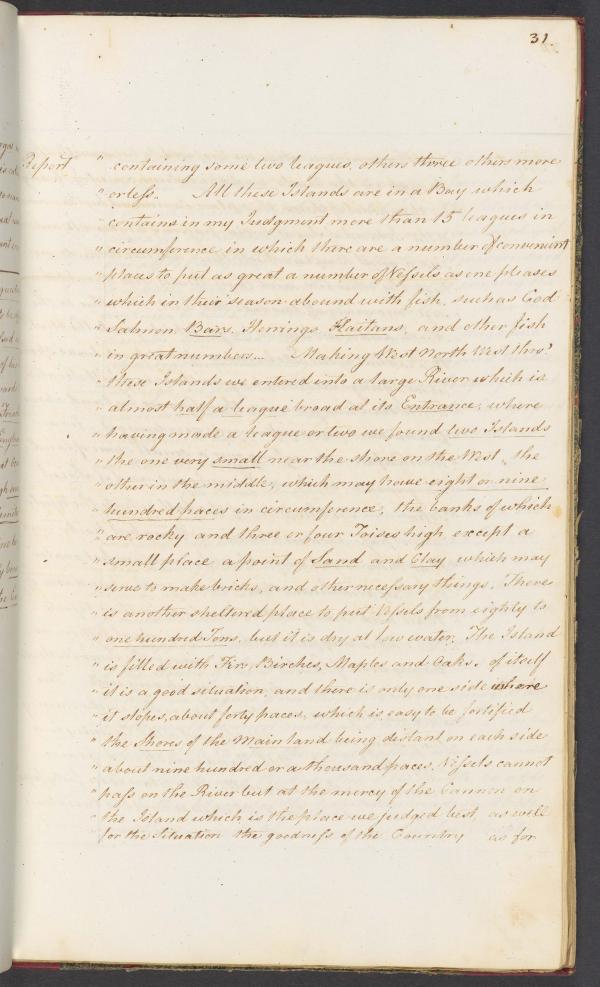 31.
Report " containing some two leagues, others three others more
" or less. All these Islands are in a Bay which
" contains in my Judgment more than 15 leagues in
" circumference in which there are a number of convenient
" places to put as great a number of Vessels as one pleases
" which in their season abound with fish, such as Cod
" Salmon, Bars, Herrings, Flaitans, and other fish
" in great numbers... Making West North West thro'
" these Islands we entered into a large River which is
" almost half a league broad at its Entrance, where
" having made a league or two we found two Islands
" the one very small near the shore on the West, the
" other in the middle, which may have eight or nine
" hundred paces in circumference, the banks of which
" are rocky and three or four Toises high except a
" small place a point of Sand and Clay which may
" serve to make bricks, and other necessary things. There
" is another sheltered place to put Vessels from eighty to
" one hundred Tons, but it is dry at low water. The Island
" is filled with Firs, Birches, Maples and Oaks. of itself
" it is a good situation, and there is only one side where
" it slopes, about forty paces, which is easy to be fortified
" the Shores of the Main land being distant on each side
" about nine hundred or a thousand paces. Vessels cannot
" pass on the River but at the mercy of the Cannon on
" the Island which is the place we judged best, as well
for the Situation the goodness of the Country as for